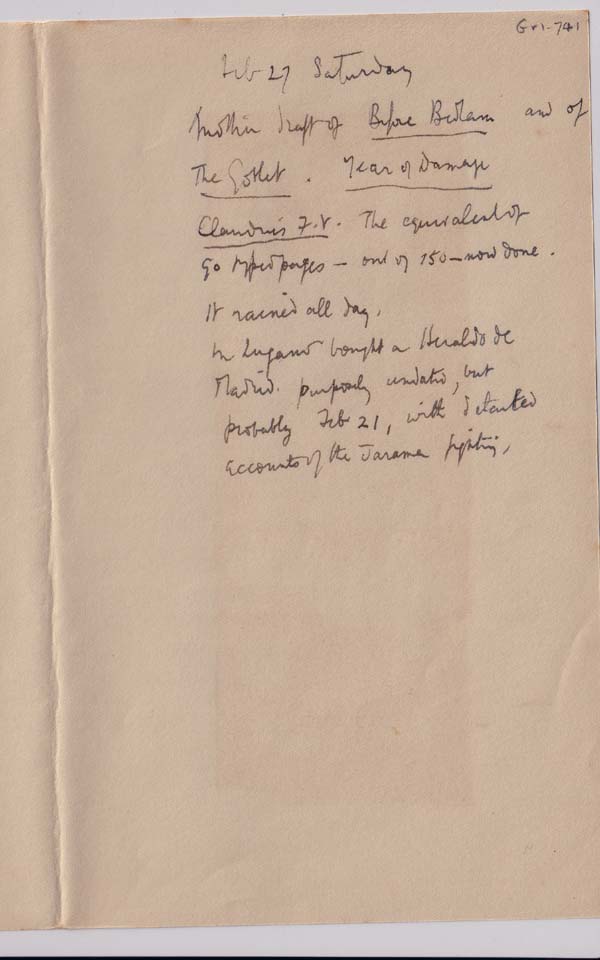 Gri-741
Feb 27 Saturday
Another draft of Before Bedlam and of
The Goblet. Year of Damage
Claudius F.V. The equivalent of
90 typed pages — out of 150 — now done.
It rained all day.
In Lugano bought a Heraldo de
Madrid. purposely undated, but
probably Feb 21, with detailed
accounts of the Jarama fighting,